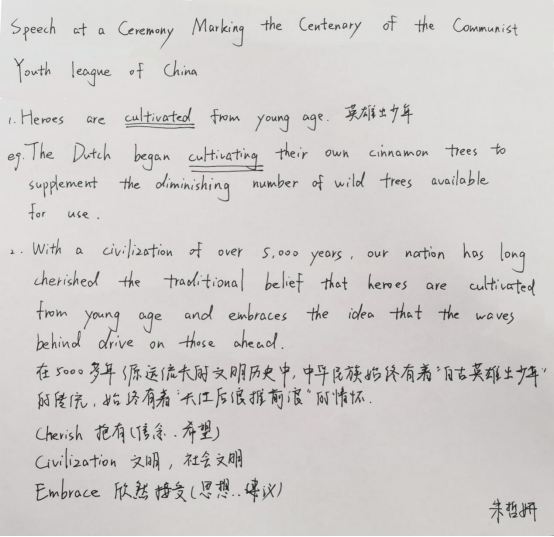 Speech at a Ceremony Marking the Centenary of the Communist
Youth league of China
1. Heroes are cultivated from young age. 英雄出少年
eg. The Dutch began cultivating their own cinnamon trees to
supplement the diminishing number of wild trees available
for use.
2. With a civilization of over 5,000 years, our nation has long
cherished the traditional belief that heroes are cultivated
from young age and embraces the idea that the waves
behind drive on those ahead.
在5000多年源远流长的文明历史中，中华民族始终有着“自古英雄出少年”
的传统，始终有着“长江后浪推前浪”的情怀.
Cherish 抱有(信念.希望)
Civilization 文明，社会文明
Embrace 欣然接受(思想..建议)
朱哲妍